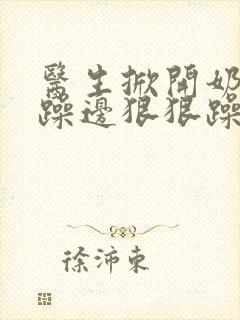 醫生掀開奶
躁邊狠狠躁
徐沛東